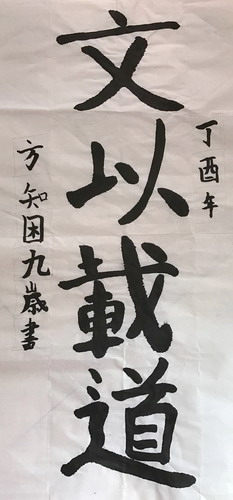 丁酉年
文以載道
方知困九歲書